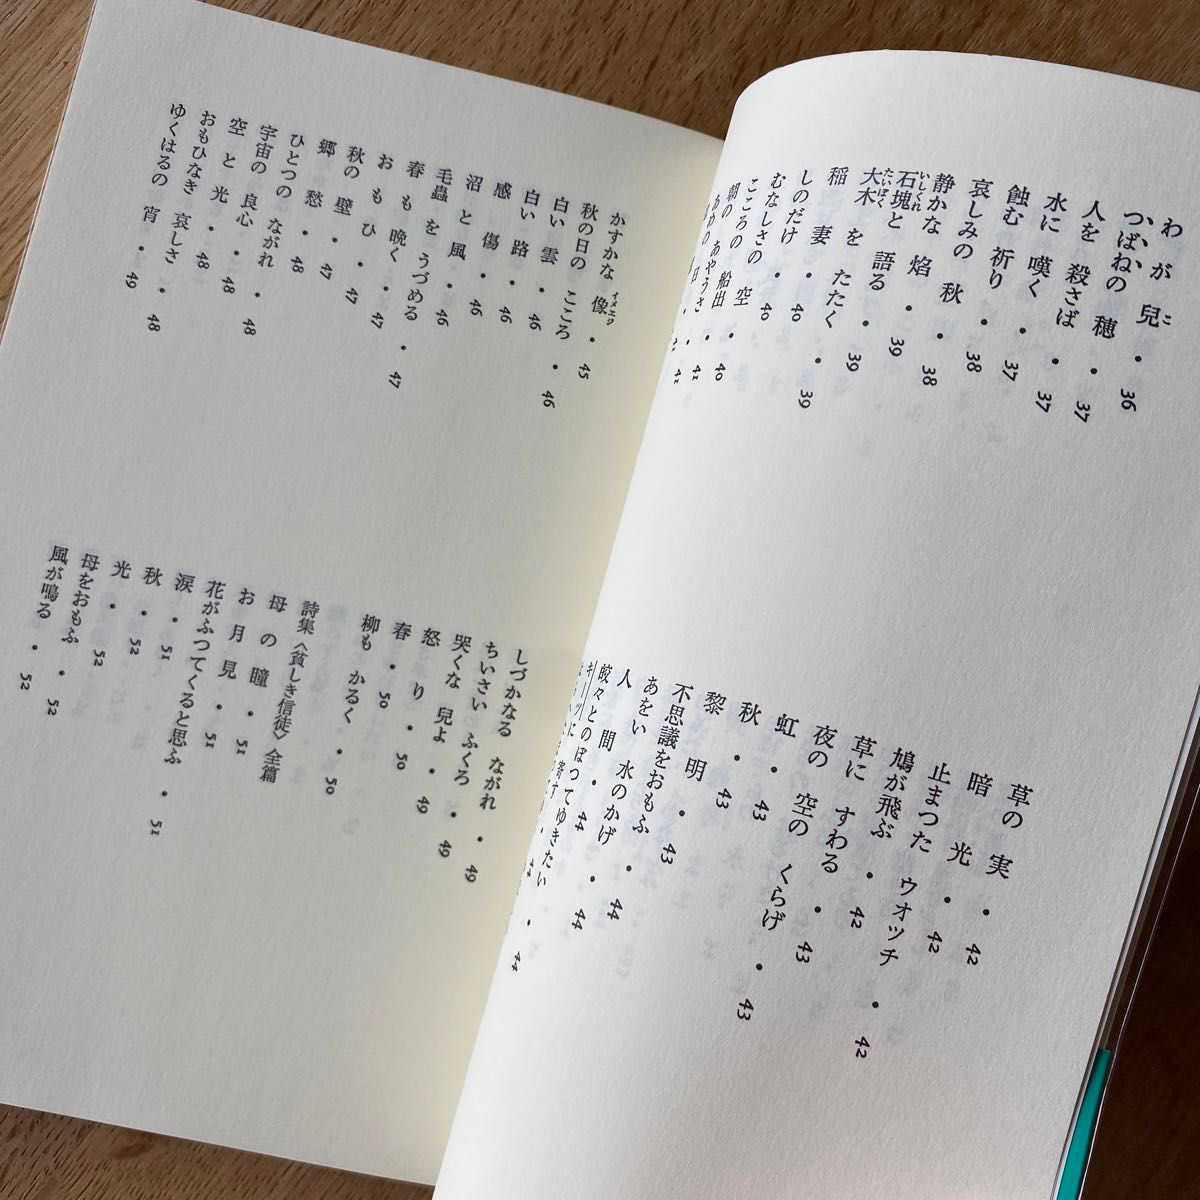 わが兒・36
コ
つばねの 穂・37
人を 殺さば・37
水に 嘆く・37
蝕む 祈り・37
哀しみの 秋・38
静かな 焰・38
石塊と 語る・39
いしくれ
大木 を たたく・39
たいぼく
稲妻・39
しのだけ・40
むなしさの 空・40
こころの 船出・40
朝の あやうさ・41
あめの 日・41
草の 実・42
暗光・42
止まつた ウオッチ・42
鳩が飛ぶ・42
草に すわる・43
夜の 空の くらげ・43
虹・43
秋・43
黎明・43
不思議をおもふ・44
あをい 水のかげ・44
人間・44
皎々とのぼつてゆきたい・44
キーツに 寄す・44
かすかな 像・45
イメエジ
秋の日の こころ・46
白い 雲・46
白い 路・46
感傷・46
沼と風・46
毛蟲を うづめる・47
春も 晩く・47
おもひ・47
秋の 壁・47
郷愁・47
ひとつの ながれ・48
宇宙の 良心・48
空と光・48
おもひなき 哀しさ・48
ゆくはるの 宵・49
しづかなる ながれ・49
ちいさい ふくろ・49
哭くな 兒よ・49
怒り・50
春・50
柳も かるく・50
詩集〈貧しき信徒〉全篇
母の瞳・51
お月見・51
花がふつてくると思ふ・51
涙・51
秋・52
光・52
母をおもふ・52
風が鳴る・52